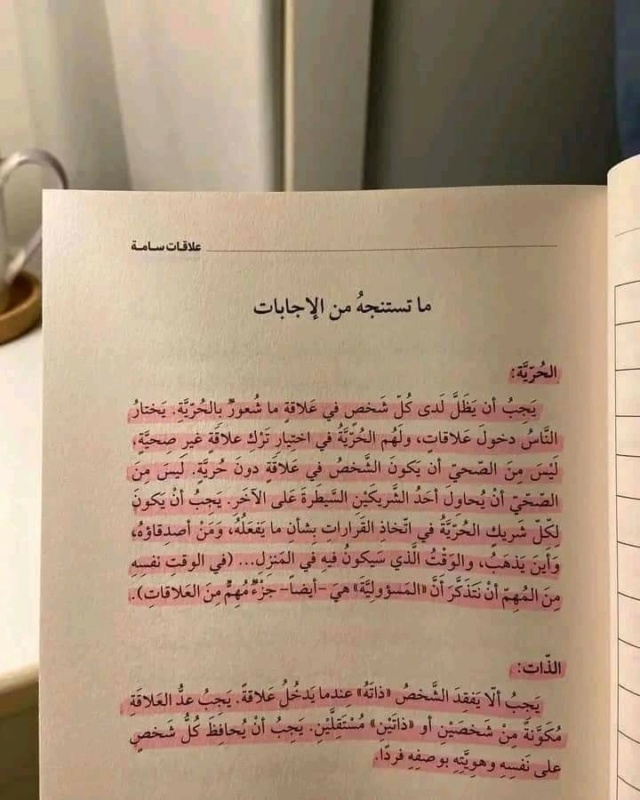 علاقات سامة
ما تستنجهُ من الإجابات
الحُرّيَّة:
يَجِبُ أن يَظَلَّ لَدى كُلّ شَخصٍ في عَلاقةٍ ما شُعورٌ بِالحُرّيَّةِ. يَختارُ
النَّاسُ دخولَ عَلاقاتٍ، ولَهُم الحُرّيَّةُ في اختِيارِ تَرْك علاقَة غَيرِ صِحيَّةٍ،
لَيْسَ مِنَ الصّحيّ أن يَكونَ الشَّخصُ في عَلاقَةٍ دونَ حُريَّةٍ. لَيسَ مِنَ
الصّحّيّ أنْ يُحاولَ أحَدُ الشَّريكَيْنِ السَّيطَرةَ عَلى الآخَرِ. يَجِبُ أنْ يَكونَ
لِكلّ شَريكٍ الحُرّيَّةُ في اتّخاذِ القَراراتِ بِشأنِ ما يَفعَلُهُ، وَمَنْ أصدِقاؤهُ،
وَأينَ يَذهَبُ، والوَقْتُ الَّذي سَيكونُ فيهِ في المَنزِلِ... (في الوقتِ نفسِهِ
مِنَ المُهِمّ أنْ نَتَذَكَّرَ أنَّ «المَسؤوليَّةَ» هيَ -أيضاً- جزْءٌ مُهِمٌّ مِنَ العَلاقاتِ).
الذّات:
يَجِبُ ألّا يَفقِدَ الشَّخصُ «ذاتَهُ» عِندما يَدخُلُ عَلاقةً. يَجِبُ عدُّ العَلاقَةِ
مُكَوَّنةً مِنْ شَخصَيْنِ أو «ذاتَيْنِ» مُستَقِلَّيْنِ. يَجِبُ أنْ يُحافِظَ كُلُّ شَخصٍ
على نَفسِهِ وهويَّتِهِ بوصفِهِ فردًا.